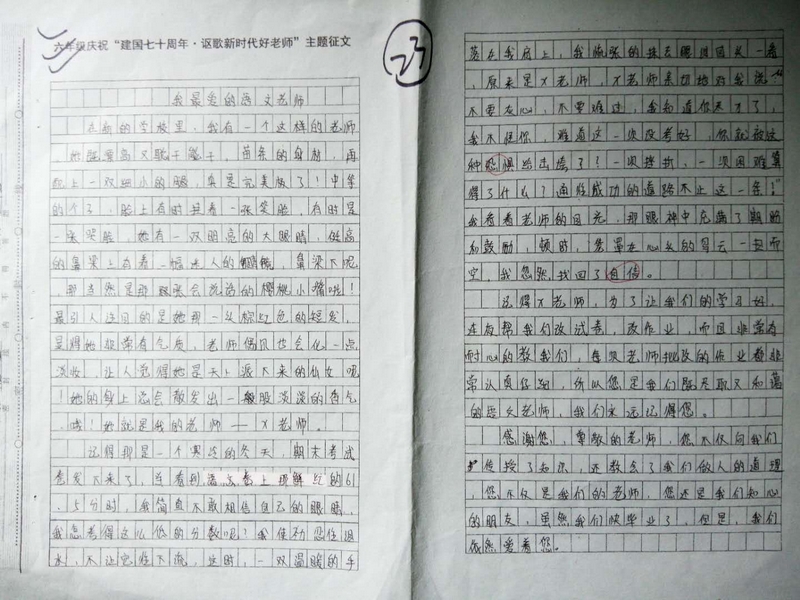 六年级庆祝“建国七十周年·讴歌新时代好老师”主题征文
我最爱的语文老师
在新的学校里，我有一个这样的老师
她既重高又耽于凝于。苗条的身材，再
配上一双细小的腿，真是完美极了！中等
的个子，脸上有时挂着一张笑脸，有时是
一张哭脸，她有一双明亮的大眼睛，低高
的鼻梁上有着一幅迷人的眼镜，鼻梁下呢，
那当然是那张会说话的樱桃小嘴啦！
最引人注目的是她那一头棕红色的短发，
显得她非常有气质，老师偶尔也会化一点
淡妆，让人觉得她是天上派下来的仙女呢
！她的身上总会散发出一股淡淡的香气
。哦！她就是我的老师——X老师。
记得那是一个寒冷的冬天，期末考试
卷发下来了，当看到语文卷上那鲜红的61
.5分时，我简直不敢相信自己的眼睛，
我怎考得这么低的分数呢？我使劲忍住泪
水，不让它落下来，这时，一双温暖的手
23
落在我肩上，我慌张的抹去眼泪回头一看
，原来是X老师，X老师亲切地对我说“
不要灰心，不要难过，我知道你尽力了，
我不怪你，难道这一次没考好，你就被这
种恐惧给击垮了？一次挫折，一次困难算
得了什么？通往成功的道路不止这一条！”
我看着老师的目光，那眼神中充满了期盼
和鼓励，顿时，笼罩在心头的乌云一扫而
空，我忽然找回了自信。
记得X老师，为了让我们的学习好，
在夜帮我们改试卷，改作业，而且非常有
耐心的教我们，每次老师批改的作业都非
常认真仔细，所以您是我们既严取又和蔼
的语文老师，我们永远记得您。
感谢您，尊敬的老师，您不仅向我们
传授了知识，还教会了我们做人的道理
，您不仅是我们的老师，您还是我们知心
的朋友，虽然我们快毕业了，但是，我们
依然爱着您。